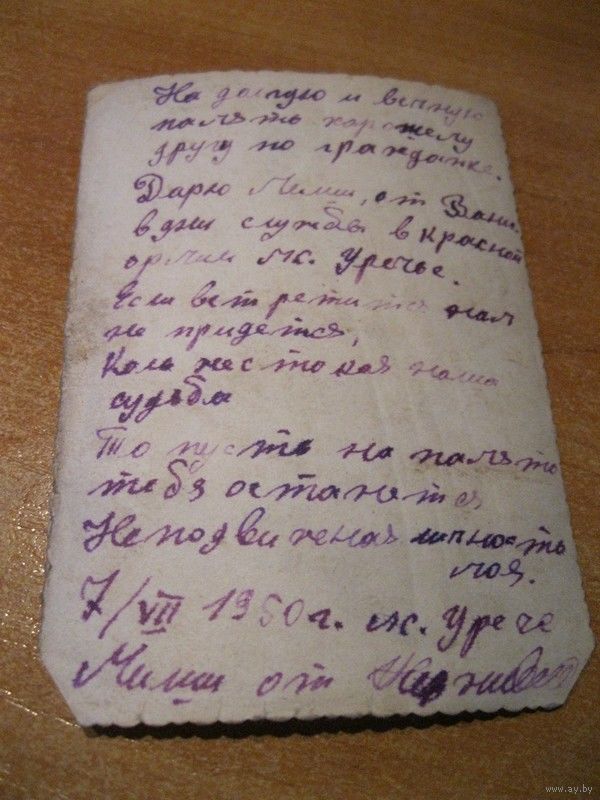 На долгую и вечную
память хорошему
другу по гражданке.
Дарю Миши, от Вани.
в дни службы в красной
армии м. Уречье.
Если встретится нам
не придется,
Коль жестокая наша
судьба
То пусть на память
тебя останется
Неподвиженая личность
моя.
7/VII 1950 г. м. Урече
Миши от
www.ay.by